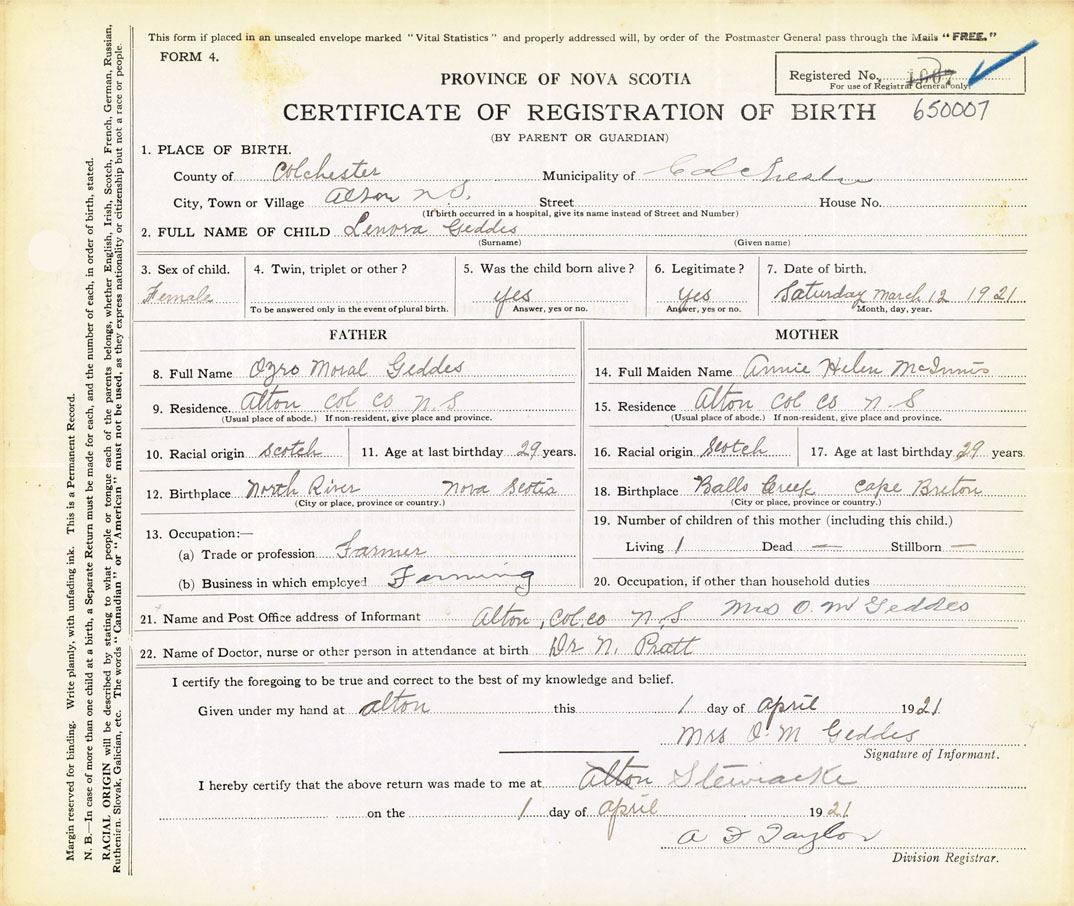 This form if placed in an unsealed envelope marked "Vital Statistics" and properly addressed will, by order of the Postmaster General pass through the Mails "FREE."
FORM 4.
PROVINCE OF NOVA SCOTIA
Registered No. 1607
For use of Registrar General only.
CERTIFICATE OF REGISTRATION OF BIRTH 650007
(BY PARENT OR GUARDIAN)
1. PLACE OF BIRTH.
County of Colchester Municipality of Colchester
City, Town or Village Alton N.S. Street House No.
(If birth occurred in a hospital, give its name instead of Street and Number)
2. FULL NAME OF CHILD Lenora Geddes
(Surname) (Given name)
3. Sex of child. 4. Twin, triplet or other? 5. Was the child born alive? 6. Legitimate? 7. Date of birth.
Female yes yes Saturday March 12 1921
To be answered only in the event of plural birth. Answer, yes or no. Answer, yes or no. Month, day, year.
FATHER MOTHER
8. Full Name Ozro Moral Geddes 14. Full Maiden Name Annie Helen McInnis
9. Residence. Alton Col Co N.S 15. Residence Alton Col Co N.S
(Usual place of abode.) If non-resident, give place and province. (Usual place of abode.) If non-resident, give place and province.
10. Racial origin Scotch 11. Age at last birthday 29 years. 16. Racial origin Scotch 17. Age at last birthday 29 years
12. Birthplace North River Nova Scotia 18. Birthplace Balls Creek Cape Breton
(City or place, province or country.) (City or place, province or country.)
13. Occupation:— 19. Number of children of this mother (including this child.)
(a) Trade or profession Farmer Living 1 Dead — Stillborn —
(b) Business in which employed Farming 20. Occupation, if other than household duties
21. Name and Post Office address of Informant Alton, Col, co N,S Mrs O. M Geddes
22. Name of Doctor, nurse or other person in attendance at birth Dr N. Pratt
I certify the foregoing to be true and correct to the best of my knowledge and belief.
Given under my hand at Alton this 1 day of April 1921
Mrs O. M Geddes
Signature of Informant.
I hereby certify that the above return was made to me at Alton Stewiacke
on the 1 day of April 1921
A F Taylor
Division Registrar.
Margin reserved for binding. Write plainly, with unfading ink. This is a Permanent Record.
N. B.—In case of more than one child at a birth, a Separate Return must be made for each, and the number of each, in order of birth, stated.
RACIAL ORIGIN will be described by stating to what people or tongue each of the parents belongs, whether English, Irish, Scotch, French, German, Russian,
Ruthenien, Slovak, Galician, etc. The words "Canadian" or "American" must not be used, as they express nationality or citizenship but not a race or people.